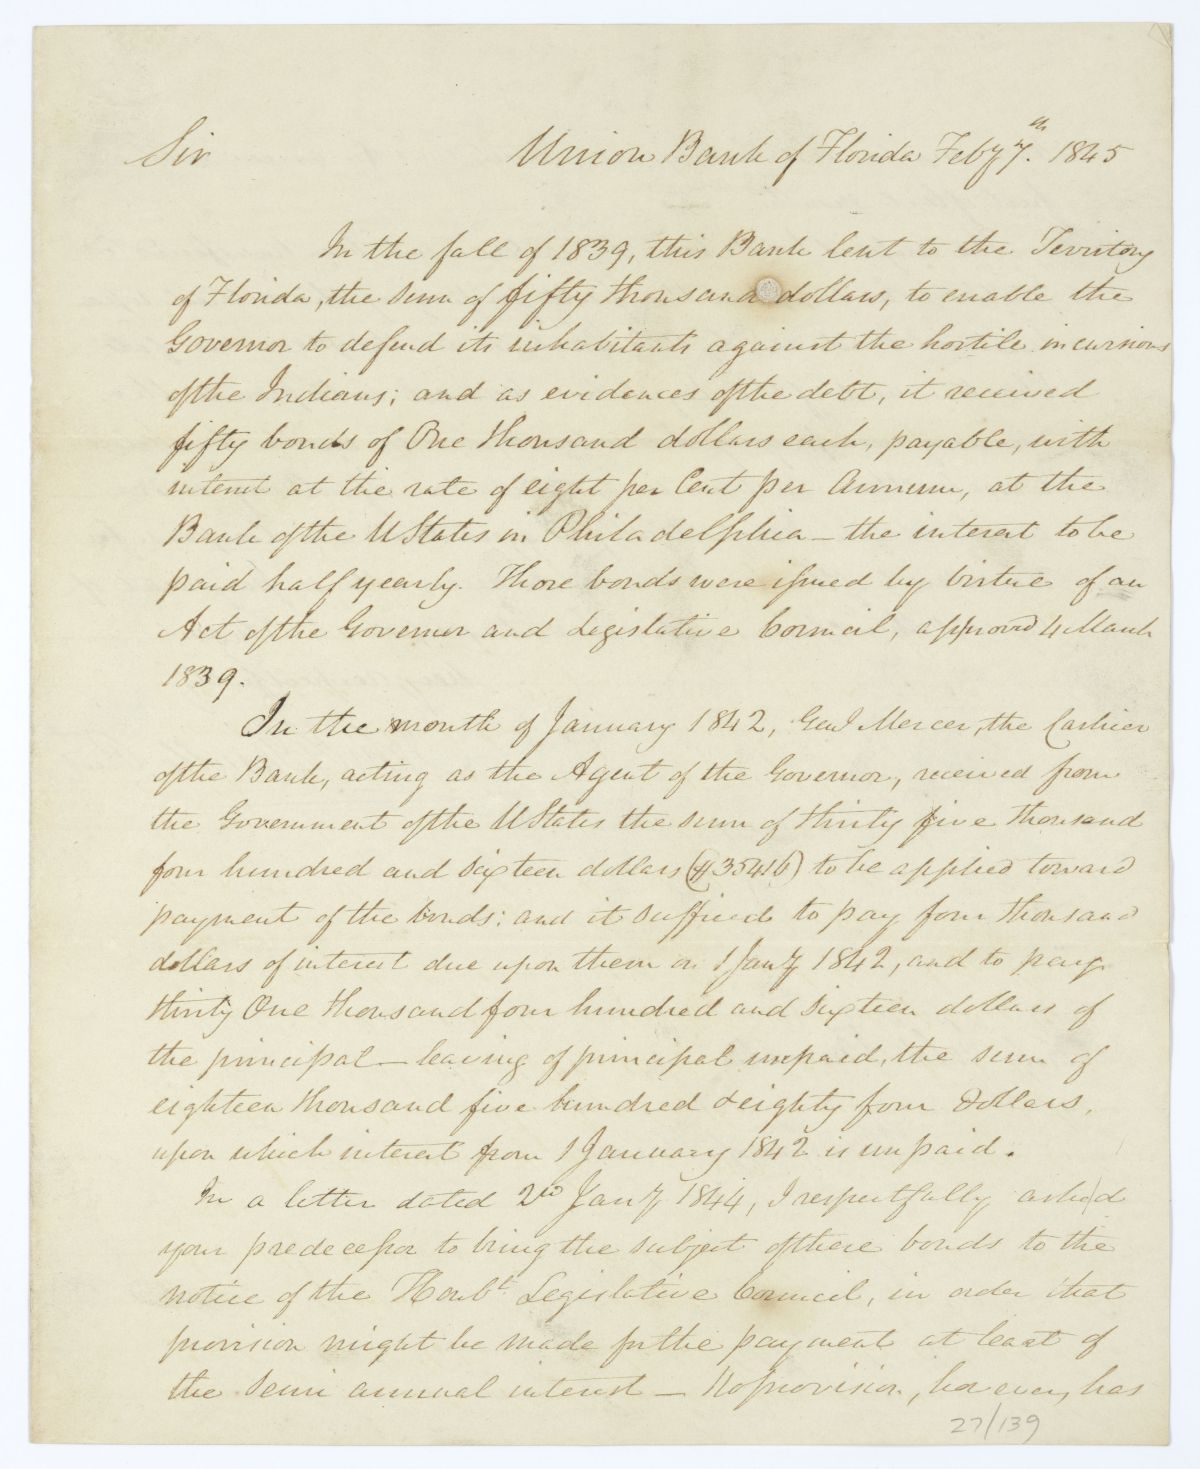 Sir Union Bank of Florida Feby 7th. 1845
In the fall of 1839, this Bank lent to the Territory
of Florida, the sum of fifty thousand dollars, to enable the
Governor to defend its inhabitants against the hostile incursions
of the Indians; and as evidences of the debt, it received
fifty bonds of One thousand dollars each, payable, with
interest at the rate of eight per Cent per Annum, at the
Bank of the UStates in Philadelphia – the interest to be
paid half yearly. Those bonds were issued by virtue of an
Act of the Governor and Legislative Council, approved 4 March
1839.
In the month of January 1842, Genl Mercer, the Cashier
of the Bank, acting as the Agent of the Governor, received from
the Government of the UStates the sum of thirty five thousand
four hundred and sixteen dollars ($35416) to be applied toward
payment of the bonds: and it sufficed to pay four thousand
dollars of interest due upon them on 1 Jany 1842, and to pay
thirty One thousand four hundred and sixteen dollars of
the principal – leaving of principal unpaid, the sum of
eighteen thousand five hundred & eighty four Dollars,
upon which interest from 1 January 1842 is unpaid.
In a letter dated 2nd Jany 1844, I respectfully asked
your predecessor to bring the subject of these bonds to the
notice of the Honble Legislative Council, in order that
provision might be made for the payment at least of
the Semi annual interest – No provision, however, has
27/139